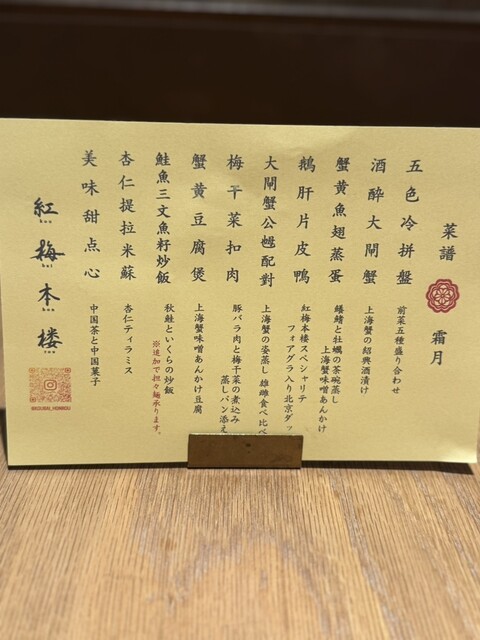 菜譜
霜月
五色冷拼盤
前菜五種盛り合わせ
酒醉大閘蟹
上海蟹の紹興酒漬け
蟹黄魚翅蒸蛋
鱶鰭と牡蠣の茶碗蒸し
上海蟹味噌あんかけ
鵝肝片皮鴨
紅梅本楼スペシャリテ
フォアグラ入り北京ダッ
大閘蟹公乸配對
上海蟹の姿蒸し 雄雌食べ比べ
梅干菜扣肉
豚バラ肉と梅干菜の煮込み
蒸しパン添え
蟹黄豆腐煲
上海蟹味噌あんかけ豆腐
鮭魚三文魚籽炒飯
秋鮭といくらの炒飯
※追加で担々麺承ります。
杏仁提拉米蘇
杏仁ティラミス
美味甜点心
中国茶と中国菓子
紅梅本楼